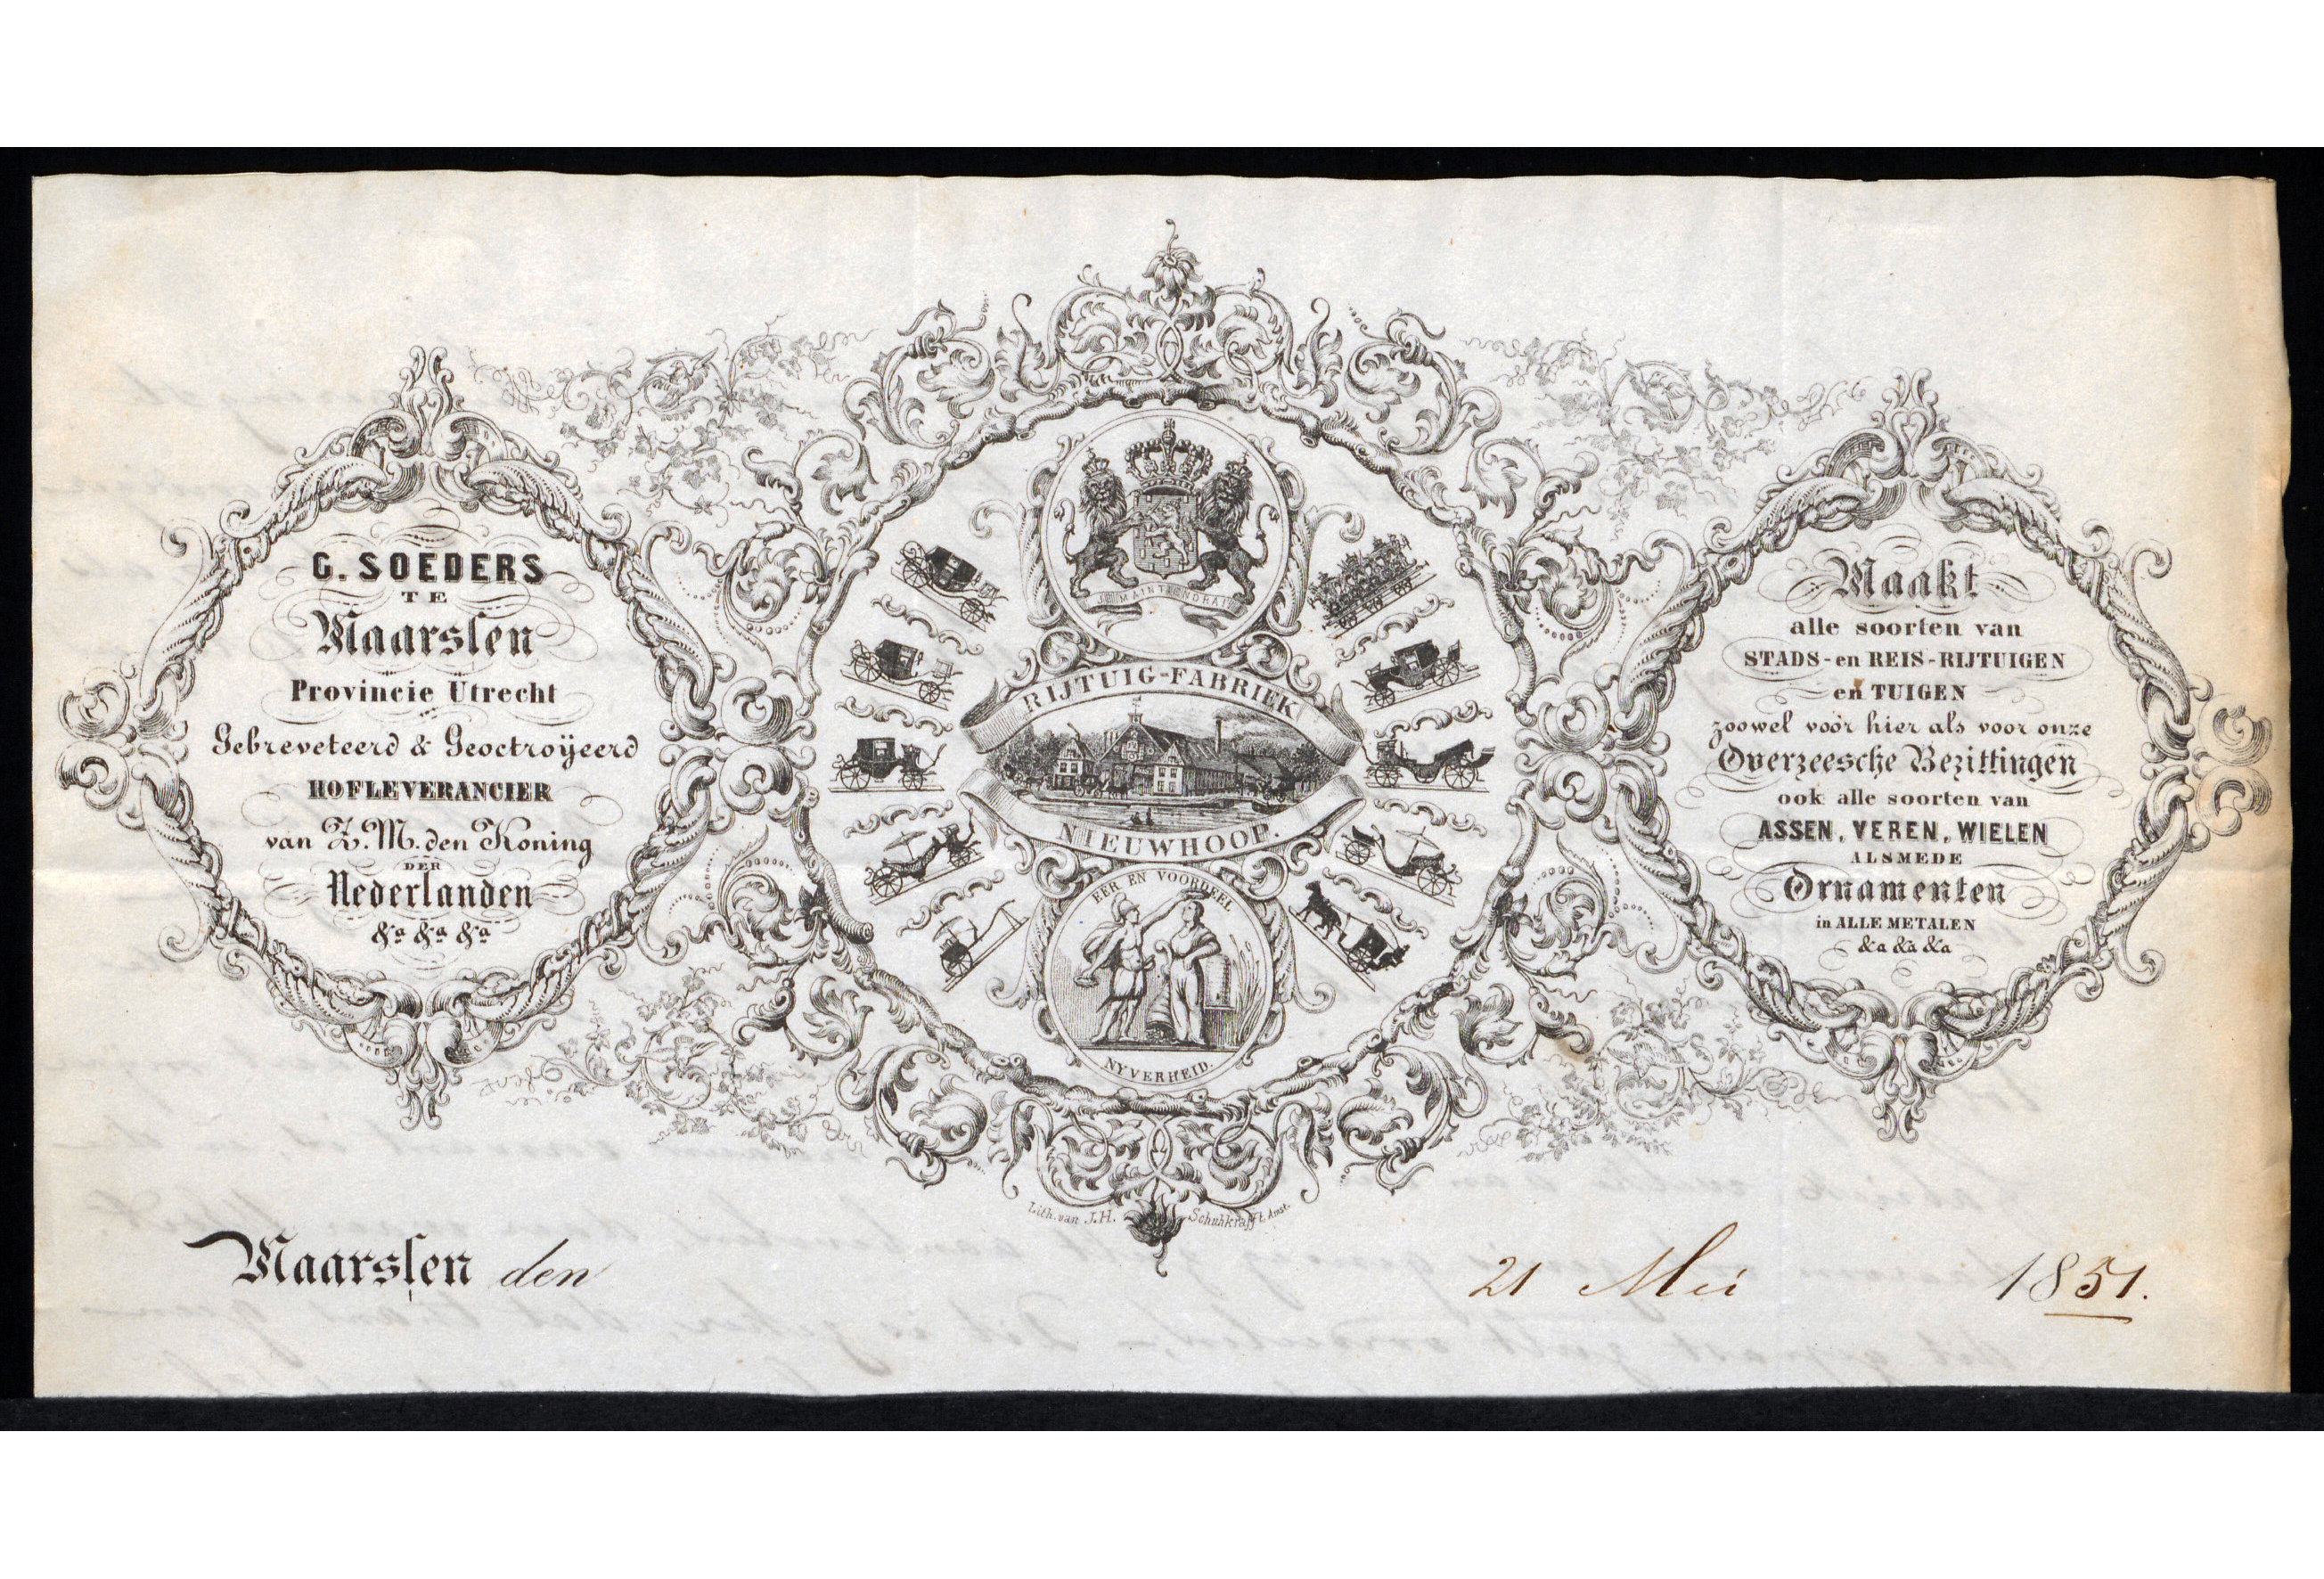 G. SOEDERS
TE
Maarsſen
Provincie Utrecht
Gebreveteerd & Geoctroijeerd
HOFLEVERANCIER
van Z. M. den Koning
DER
Nederlanden
&a &a &a
JE MAINTIENDRAI
RIJTUIG-FABRIEK
NIEUWHOOP.
EER EN VOORDEEL
NYVERHEID.
Maakt
alle soorten van
STADS- en REIS-RIJTUIGEN
en TUIGEN
zoowel voor hier als voor onze
Overzeesche Bezittingen
ook alle soorten van
ASSEN, VEREN, WIELEN
ALSMEDE
Ornamenten
in ALLE METALEN
&a &a &a
Lith. van J. H. Schuhkrafft Amst.
Maarsſen den 21 Mei 1851.